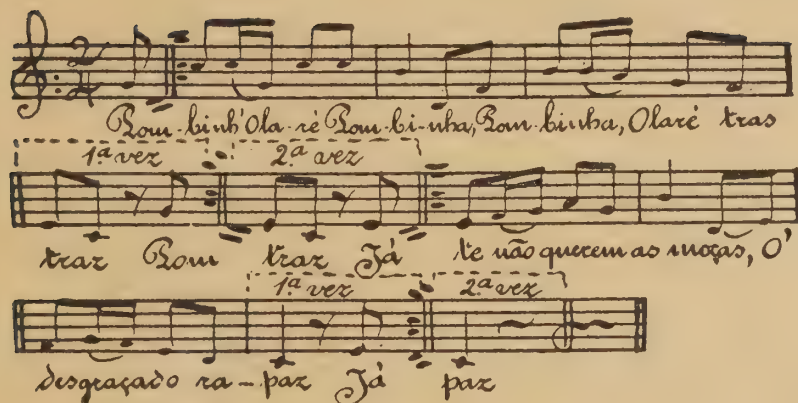 Pom-binh' Ola-ré Pom-bi-nha, Pom-binha, Olaré tras
1ª vez 2ª vez
traz Pom traz Já te não querem as moças, O'
1ª vez 2ª vez
desgraçado ra-paz Já paz